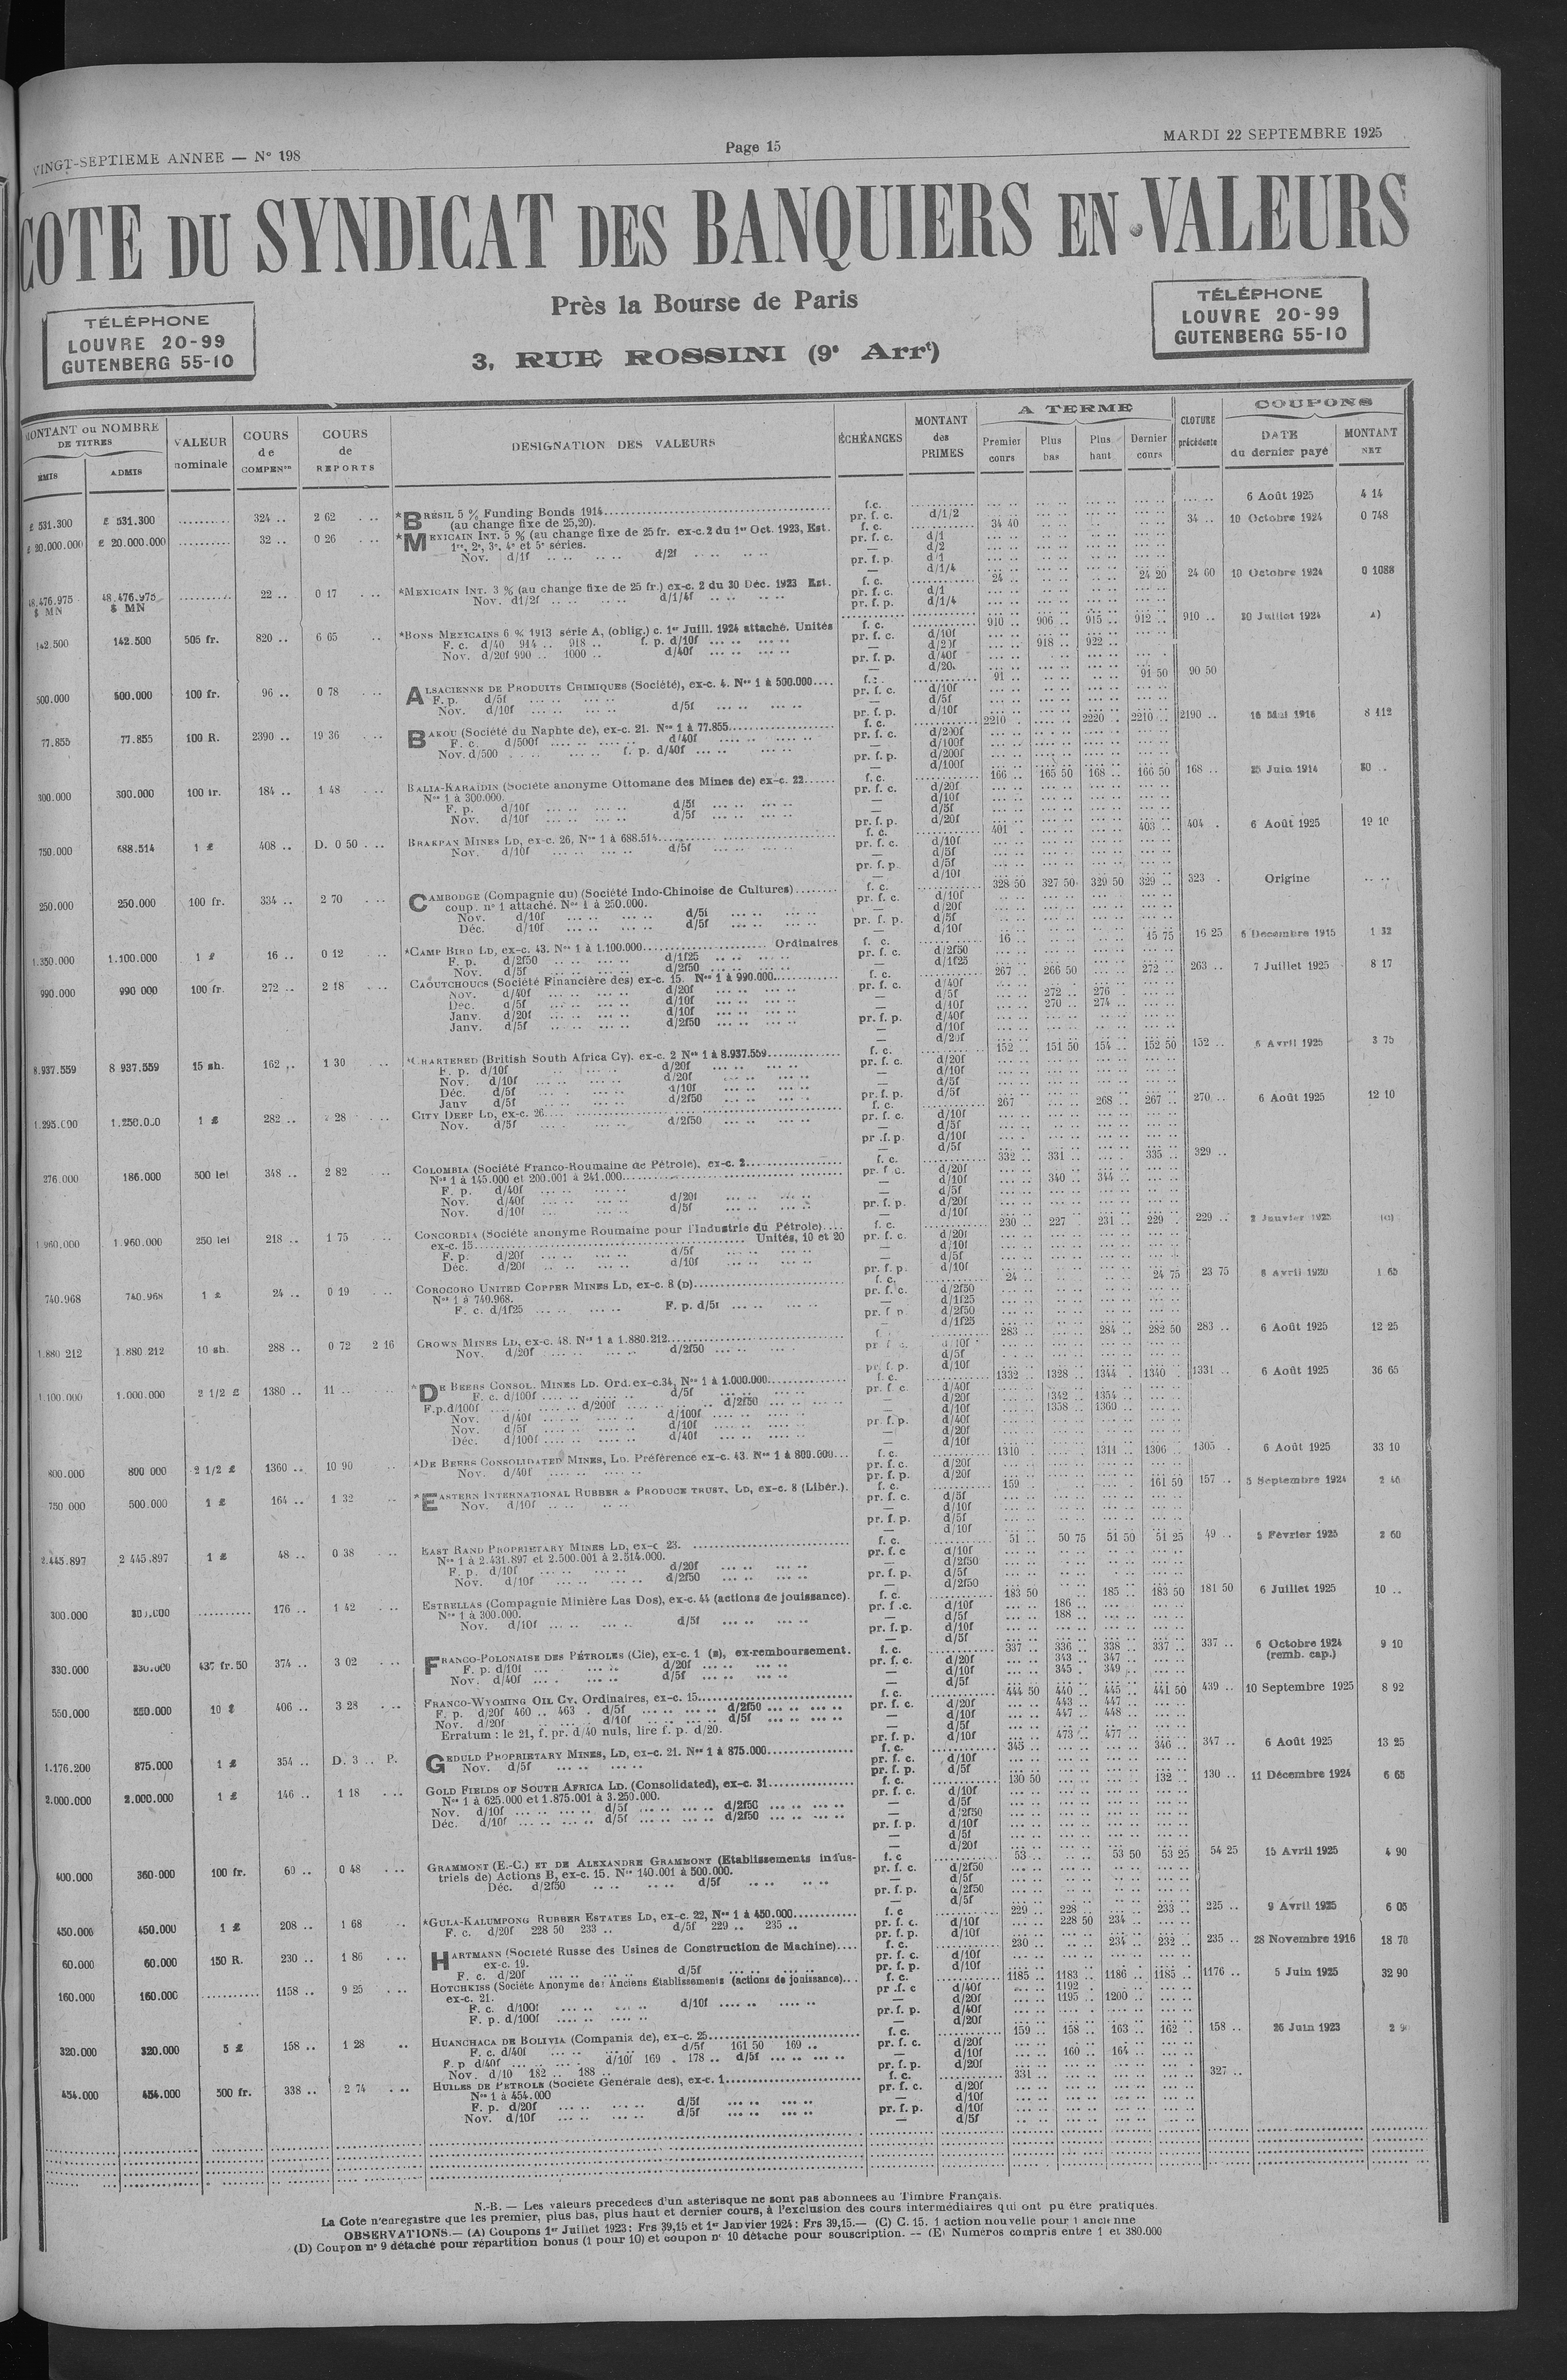 VINGT-SEPTIEME ANNEE — N° 198
Page 15
MARDI 22 SEPTEMBRE 1925
COTE DU SYNDICAT DES BANQUIERS EN VALEURS
Près la Bourse de Paris
3, RUE ROSSINI (9e Arrt)
TÉLÉPHONE
LOUVRE 20-99
GUTENBERG 55-10
TÉLÉPHONE
LOUVRE 20-99
GUTENBERG 55-10
MONTANT ou NOMBRE DE TITRES
ÉMIS
ADMIS
VALEUR nominale
COURS de COMPENon
COURS de REPORTS
DESIGNATION DES VALEURS
ÉCHÉANCES
MONTANT des PRIMES
A TERME
Premier cours
Plus bas
Plus haut
Dernier cours
CLOTURE précédente
COUPONS
DATE du dernier payé
MONTANT NET
£ 531.300 £ 531.300 324 .. 2 62 *BRÉSIL 5 % Funding Bonds 1914 f.c. 6 Août 1925 4 14
(au change fixe de 25,20). pr. f. c. d/1/2
£ 20.000.000 £ 20.000.000 32 .. 0 26 *MEXICAIN INT. 5 % (au change fixe de 25 fr. ex-c. 2 du 1er Oct. 1923, Est. f. c. 34 40 34 .. 10 Octobre 1924 0 748
1re, 2e, 3e, 4e et 5e séries. pr. f. c. d/1
Nov. d/1f d/2f
48.476.975 $ MN 48.476.975 $ MN 22 .. 0 17 *MEXICAIN INT. 3 % (au change fixe de 25 fr.) ex-c. 2 du 30 Déc. 1923 Est. f. c. 24 .. 24 20 24 60 10 Octobre 1924 0 1088
Nov. d1/2f d/1/4f
142.500 142.500 505 fr. 820 .. 6 65 *BONS MEXICAINS 6 % 1913 série A, (oblig.) c. 1er Juill. 1924 attaché. Unités f. c. 910 .. 906 .. 915 .. 912 .. 910 .. 30 Juillet 1924 A)
F. c. d/40 914 .. 918 .. f. p. d/10f pr. f. c. d/10f
Nov. d/20f 990 .. 1000 .. d/40f d/20f 918 .. 922 ..
500.000 500.000 100 fr. 96 .. 0 78 ALSACIENNE DE PRODUITS CHIMIQUES (Société), ex-c. 4. Nos 1 à 500.000 91 .. 91 50 90 50
F. p. d/5f
Nov. d/10f d/5f
77.855 77.855 100 R. 2390 .. 19 36 BAKOU (Société du Naphte de), ex-c. 21. Nos 1 à 77.855 f. c. 2210 .. 2220 .. 2210 .. 2190 .. 16 Mai 1916 8 112
F. c. d/500f d/40f
Nov. d/500 f. p. d/40f
300.000 300.000 100 fr. 184 .. 1 48 BALIA-KARAÏDIN (Société anonyme Ottomane des Mines de) ex-c. 22 f. c. 166 .. 165 50 168 .. 166 50 168 .. 25 Juin 1914 30 ..
Nos 1 à 300.000.
F. p. d/10f d/5f
Nov. d/10f d/5f
750.000 688.514 1 £ 408 .. D. 0 50 BRAKPAN MINES LD, ex-c. 26, Nos 1 à 688.514 f. c. 401 403 404 6 Août 1925 19 10
Nov. d/10f d/5f
250.000 250.000 100 fr. 334 .. 2 70 CAMBODGE (Compagnie du) (Société Indo-Chinoise de Cultures) f. c. 328 50 327 50 329 50 329 .. 323 Origine
coup. n° 1 attaché. Nos 1 à 250.000.
Nov. d/10f d/5f
Déc. d/10f d/5f
1.350.000 1.100.000 1 £ 16 .. 0 12 *CAMP BIRD LD, ex-c. 43. Nos 1 à 1.100.000 Ordinaires f. c. 16 15 75 16 25 6 Décembre 1915 1 32
F. p. d/2f50 d/1f25
Nov. d/5f d/2f50
990.000 990 000 100 fr. 272 .. 2 18 CAOUTCHOUCS (Société Financière des) ex-c. 15. Nos 1 à 990.000 f. c. 267 .. 266 50 272 .. 263 .. 7 Juillet 1925 8 17
Nov. d/40f d/20f d/5f 272 .. 276
Déc. d/5f d/10f d/10f 270 .. 274 ..
Janv. d/20f d/10f
Janv. d/5f d/2f50
8.937.559 8 937.559 15 sh. 162 .. 1 30 *CHARTERED (British South Africa Cy). ex-c. 2 Nos 1 à 8.937.559 f. c. 152 .. 151 50 154 .. 152 50 152 .. 6 Avril 1925 3 75
F. p. d/10f d/20f
Nov. d/10f d/20f
Déc. d/5f d/10f
Janv d/5f d/2f50
1.295.000 1.250.000 1 £ 282 .. 2 28 CITY DEEP LD, ex-c. 26 f. c. 267 268 .. 267 .. 270 .. 6 Août 1925 12 10
Nov. d/5f d/2f50
276.000 186.000 500 lei 348 .. 2 82 COLOMBIA (Société Franco-Roumaine de Pétrole), ex-c. 2 f. c. 332 .. 331 .. 335 .. 329 ..
Nos 1 à 145.000 et 200.001 à 241.000 d/10f 340 .. 344 ..
F. p. d/40f
Nov. d/40f d/20f
Nov. d/10f d/5f
1.960.000 1.960.000 250 lei 218 .. 1 75 CONCORDIA (Société anonyme Roumaine pour l'Industrie du Pétrole) f. c. 230 .. 227 231 .. 229 .. 229 .. 2 Janvier 1925
ex-c. 15 Unités, 10 et 20
F. p. d/20f d/5f
Déc. d/20f d/10f
740.968 740.968 1 £ 24 .. 0 19 COROCORO UNITED COPPER MINES LD, ex-c. 8 (D) f. c. 24 .. 24 75 23 75 8 Avril 1920 1 65
Nos 1 à 740.968.
F. c. d/1f25 F. p. d/5f
1.880 212 1.880 212 10 sh. 288 .. 0 72 2 16 CROWN MINES LD, ex-c. 48. Nos 1 à 1.880.212 283 .. 284 .. 282 50 283 .. 6 Août 1925 12 25
Nov. d/20f d/2f50
1.100.000 1.000.000 2 1/2 £ 1380 .. 11 .. *DE BEERS CONSOL. MINES LD. Ord. ex-c. 34, Nos 1 à 1.000.000 f. c. 1332 .. 1328 .. 1344 .. 1340 .. 1331 .. 6 Août 1925 36 65
F. c. d/100f d/5f d/20f 1342 .. 1354 ..
F.p.d/100f d/200f d/2f50 d/10f 1358 .. 1360 ..
Nov. d/40f d/100f
Nov. d/5f d/10f
Déc. d/100f d/40f
800.000 800 000 2 1/2 £ 1360 .. 10 90 *DE BEERS CONSOLIDATED MINES, LD. Préférence ex-c. 43. Nos 1 à 800.000 f. c. 1310 .. 1311 .. 1306 .. 1305 .. 6 Août 1925 33 10
Nov. d/40f
750 000 500.000 1 £ 164 .. 1 32 *EASTERN INTERNATIONAL RUBBER & PRODUCE TRUST, LD, ex-c. 8 (Libér.). f. c. 159 .. 161 50 157 .. 5 Septembre 1924
Nov. d/10f
2.445.897 2 445.897 1 £ 48 .. 0 38 EAST RAND PROPRIETARY MINES LD, ex-c 23. f. c. 51 .. 50 75 51 50 51 25 49 .. 5 Février 1925 2 60
Nos 1 à 2.431.897 et 2.500.001 à 2.514.000.
F. p. d/10f d/20f
Nov. d/10f d/2f50
300.000 300.000 176 .. 1 42 ESTRELLAS (Compagnie Minière Las Dos), ex-c. 44 (actions de jouissance). f. c. 183 50 185 .. 183 50 181 50 6 Juillet 1925 10 ..
Nos 1 à 300.000. d/10f 186 ..
Nov. d/10f d/5f d/5f 188 ..
330.000 330.000 437 fr. 50 374 .. 3 02 FRANCO-POLONAISE DES PÉTROLES (Cie), ex-c. 1 (E), ex-remboursement. f. c. 337 .. 336 .. 338 .. 337 .. 337 .. 6 Octobre 1924 (remb. cap.) 9 10
F. p. d/10f d/20f pr. f. c. d/20f 343 .. 347 ..
Nov. d/40f d/5f d/10f 345 . 349 ..
550.000 550.000 10 $ 406 .. 3 28 FRANCO-WYOMING OIL Cy. Ordinaires, ex-c. 15 f. c. 444 50 440 .. 445 .. 441 50 439 .. 10 Septembre 1925 8 92
F. p. d/20f 460 .. 463 . d/5f d/2f50 pr. f. c. d/20f 443 .. 447 ..
Nov. d/20f d/10f d/5f d/10f 447 .. 448 ..
Erratum : le 21, f. pr. d/40 nuls, lire f. p. d/20. pr. f. p. d/10f 473 .. 477 ..
1.176.200 875.000 1 £ 354 .. D. 3 .. P. GEDULD PROPRIETARY MINES, LD, ex-c. 21. Nos 1 à 875.000 f. c. 345 .. 346 .. 347 .. 6 Août 1925 13 25
Nov. d/5f
2.000.000 2.000.000 1 £ 146 .. 1 18 GOLD FIELDS OF SOUTH AFRICA LD. (Consolidated), ex-c. 31 f. c. 130 50 132 .. 130 .. 11 Décembre 1924 6 65
Nos 1 à 625.000 et 1.875.001 à 3.250.000.
Nov. d/10f d/5f d/2f50
Déc. d/10f d/5f d/2f50
400.000 360.000 100 fr. 60 .. 0 48 GRAMMONT (E.-C.) ET DE ALEXANDRE GRAMMONT (Etablissements indus- f. c 53 .. 53 50 53 25 54 25 15 Avril 1925 4 90
triels de) Actions B, ex-c. 15. Nos 140.001 à 500.000.
Déc. d/2f50 d/5f
450.000 450.000 1 £ 208 .. 1 68 *GULA-KALUMPONG RUBBER ESTATES LD, ex-c. 22, Nos 1 à 450.000 f. c 229 .. 228 .. 233 .. 225 .. 9 Avril 1925 6 05
F. c. d/20f 228 50 233 .. d/5f 229 .. 235 .. pr. f. c. d/10f 228 50 234 ..
60.000 60.000 150 R. 230 .. 1 86 HARTMANN (Société Russe des Usines de Construction de Machine) f. c. 230 .. 234 .. 232 .. 235 .. 28 Novembre 1916 18 70
ex-c. 19.
F. c. d/20f d/5f
160.000 160.000 1158 .. 9 25 HOTCHKISS (Société Anonyme des Anciens Établissements (actions de jouissance) f. c. 1185 .. 1183 .. 1186 .. 1185 .. 1176 .. 5 Juin 1925 32 90
ex-c. 21. d/40f 1192 .
F. c. d/100f d/10f d/20f 1195 . 1200 ..
F. p. d/100f
320.000 320.000 5 £ 158 .. 1 28 HUANCHACA DE BOLIVIA (Compania de), ex-c. 25 f. c. 159 .. 158 .. 163 .. 162 . 158 .. 26 Juin 1923
F. c. d/40f d/5f 161 50 169 ..
F. p d/40f d/10f 169 . 178 .. d/5f d/10f 160 .. 164 ..
Nov. d/10 182 .. 188 ..
454.000 454.000 500 fr. 338 .. 2 74 HUILES DE PÉTROLE (Société Générale des), ex-c. 1 f. c. 331 .. 327 ..
Nos 1 à 454.000
F. p. d/20f d/5f
Nov. d/10f d/5f
N.-B. — Les valeurs précédées d'un astérisque ne sont pas abonnées au Timbre Français.
La Cote n'enregistre que les premier, plus bas, plus haut et dernier cours, à l'exclusion des cours intermédiaires qui ont pu être pratiqués.
OBSERVATIONS.— (A) Coupons 1er Juillet 1923 : Frs 39,15 et 1er Janvier 1924 : Frs 39,15.— (C) C. 15. 1 action nouvelle pour 1 ancienne
(D) Coupon n° 9 détaché pour répartition bonus (1 pour 10) et coupon n° 10 détaché pour souscription. -- (E) Numéros compris entre 1 et 380.000